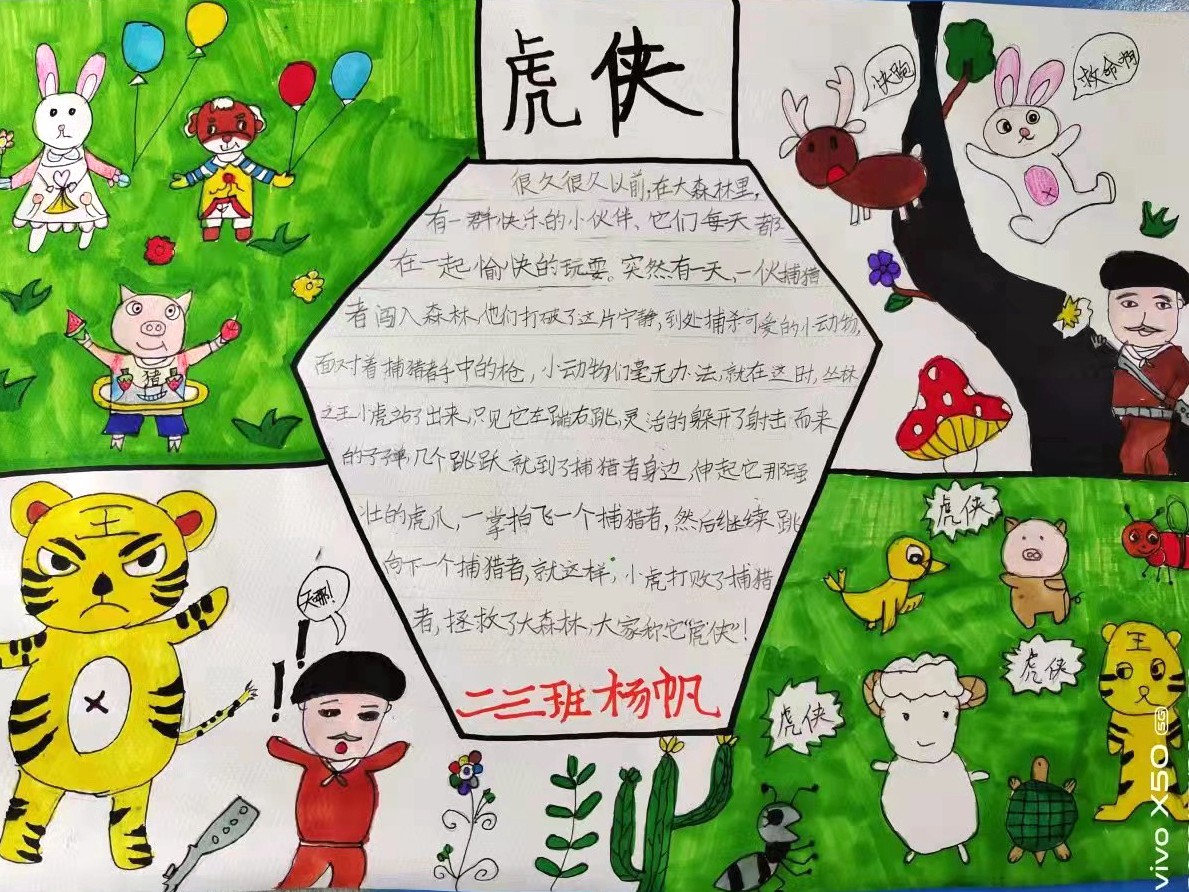 虎侠
很久很久以前,在大森林里,
有一群快乐的小伙伴、它们每天都
在一起愉快的玩耍。突然有一天,一伙捕猎
者闯入森林,他们打破了这片宁静,到处捕杀可爱的小动物,
面对着捕猎者手中的枪,小动物们毫无办法,就在这时,丛林
之王小虎站了出来,只见它左蹦右跳,灵活的躲开了射击而来
的子弹,几个跳跃就到了捕猎者身边,伸起它那强
壮的虎爪,一掌拍飞一个捕猎者,然后继续跳
向下一个捕猎者,就这样,小虎打败了捕猎
者,拯救了大森林,大家称它“虎侠”!
二三班 杨帆
快跑
救命啊
猪
王
天哪!
!!
虎侠
虎侠
虎侠
王
vivo X50 5G